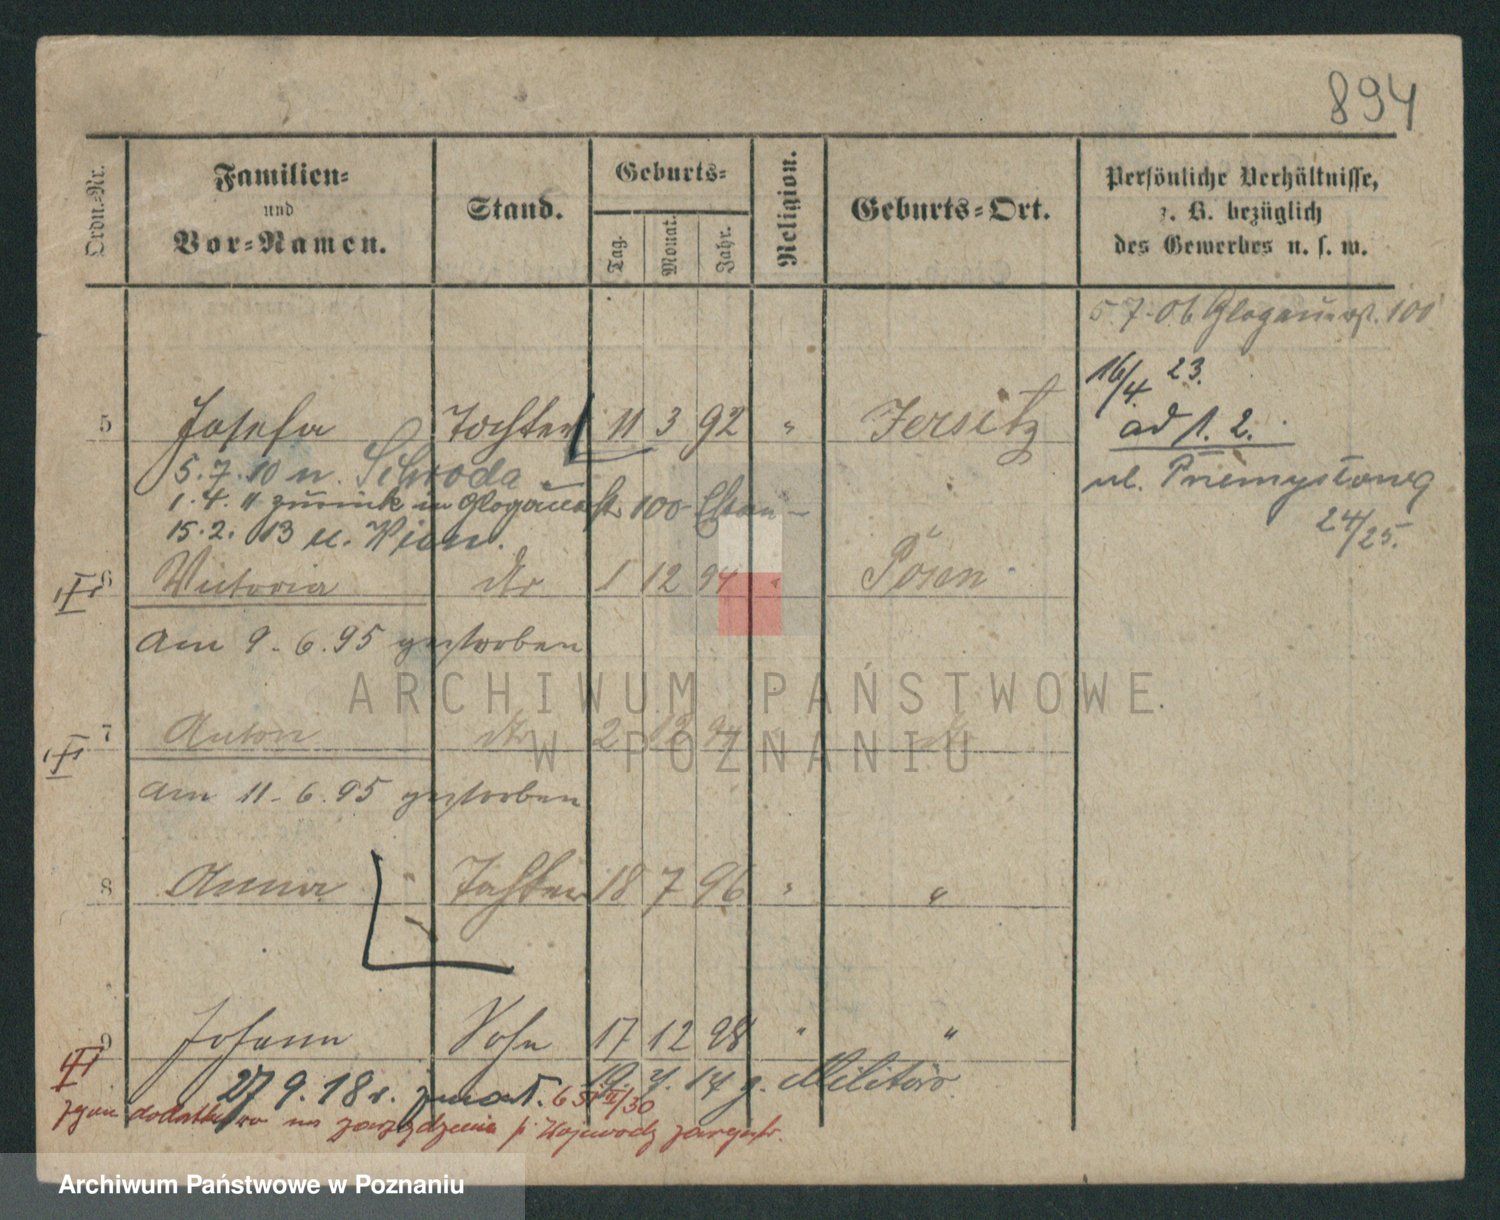 894
Ordn.-Nr.
Familien-
und
Vor-Namen.
Stand.
Geburts-
Tag.
Monat.
Jahr.
Religion.
Geburts-Ort.
Persönliche Verhältnisse,
z. B. bezüglich
des Gewerbes u. s. w.
5.7.06 Glogauerst. 100
16/4. 23.
ad 1. 2.
ul.
24/25.
5 Josefa Tochter 11 3 92 " Jersitz
5.7.10 n. Schroda
1.4.11 zurück in Glogauerstr 100
15.2.13 n.
6 Victoria dto 1 12 94 " Posen
am 9.6.95 gestorben
7 Anton dto 2 12 94 dto
am 11.6.95 gestorben
8 Anna Tochter 18 7 96 " "
9 Johann Sohn 17 12 98 " "
19. 7. 14 z. Militär
27 9. 18 r. zmarł.
zgon dodatkowo na zarządzenie p. Wojewody zarejestr.
ARCHIWUM PAŃSTWOWE
W POZNANIU
Archiwum Państwowe w Poznaniu